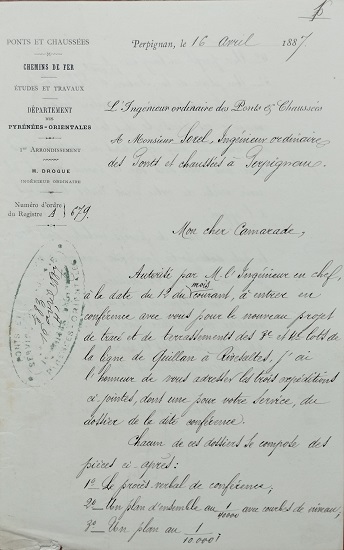 1
PONTS ET CHAUSSÉES
CHEMINS DE FER
ÉTUDES ET TRAVAUX
DÉPARTEMENT
DES
PYRÉNÉES-ORIENTALES
1er ARRONDISSEMENT
M. DROGUE
INGÉNIEUR ORDINAIRE
Numéro d'ordre
du Registre A 679.
Perpignan, le 16 Avril 1887.
L'Ingénieur ordinaire des Ponts & Chaussées
A Monsieur Sorel, Ingénieur ordinaire
des Ponts et chaussées à Perpignan.
Mon cher Camarade,
Autorisé par M. l'Ingénieur en chef,
à la date du 12 du mois courant, à entrer en
conférence avec vous pour le nouveau projet
de tracé et de terrassements des 3e et 4e lots de
la ligne de Quillan à Rivesaltes, J'ai
l'honneur de vous adresser les trois expéditions
ci jointes, dont une pour votre service, du
dossier de la dite conférence.
Chacun de ces dossiers se compose des
pièces ci-après:
1º Le procès verbal de conférence;
2º Un plan d'ensemble au avec courbes de niveau;
3º Un plan au 1/10.000e